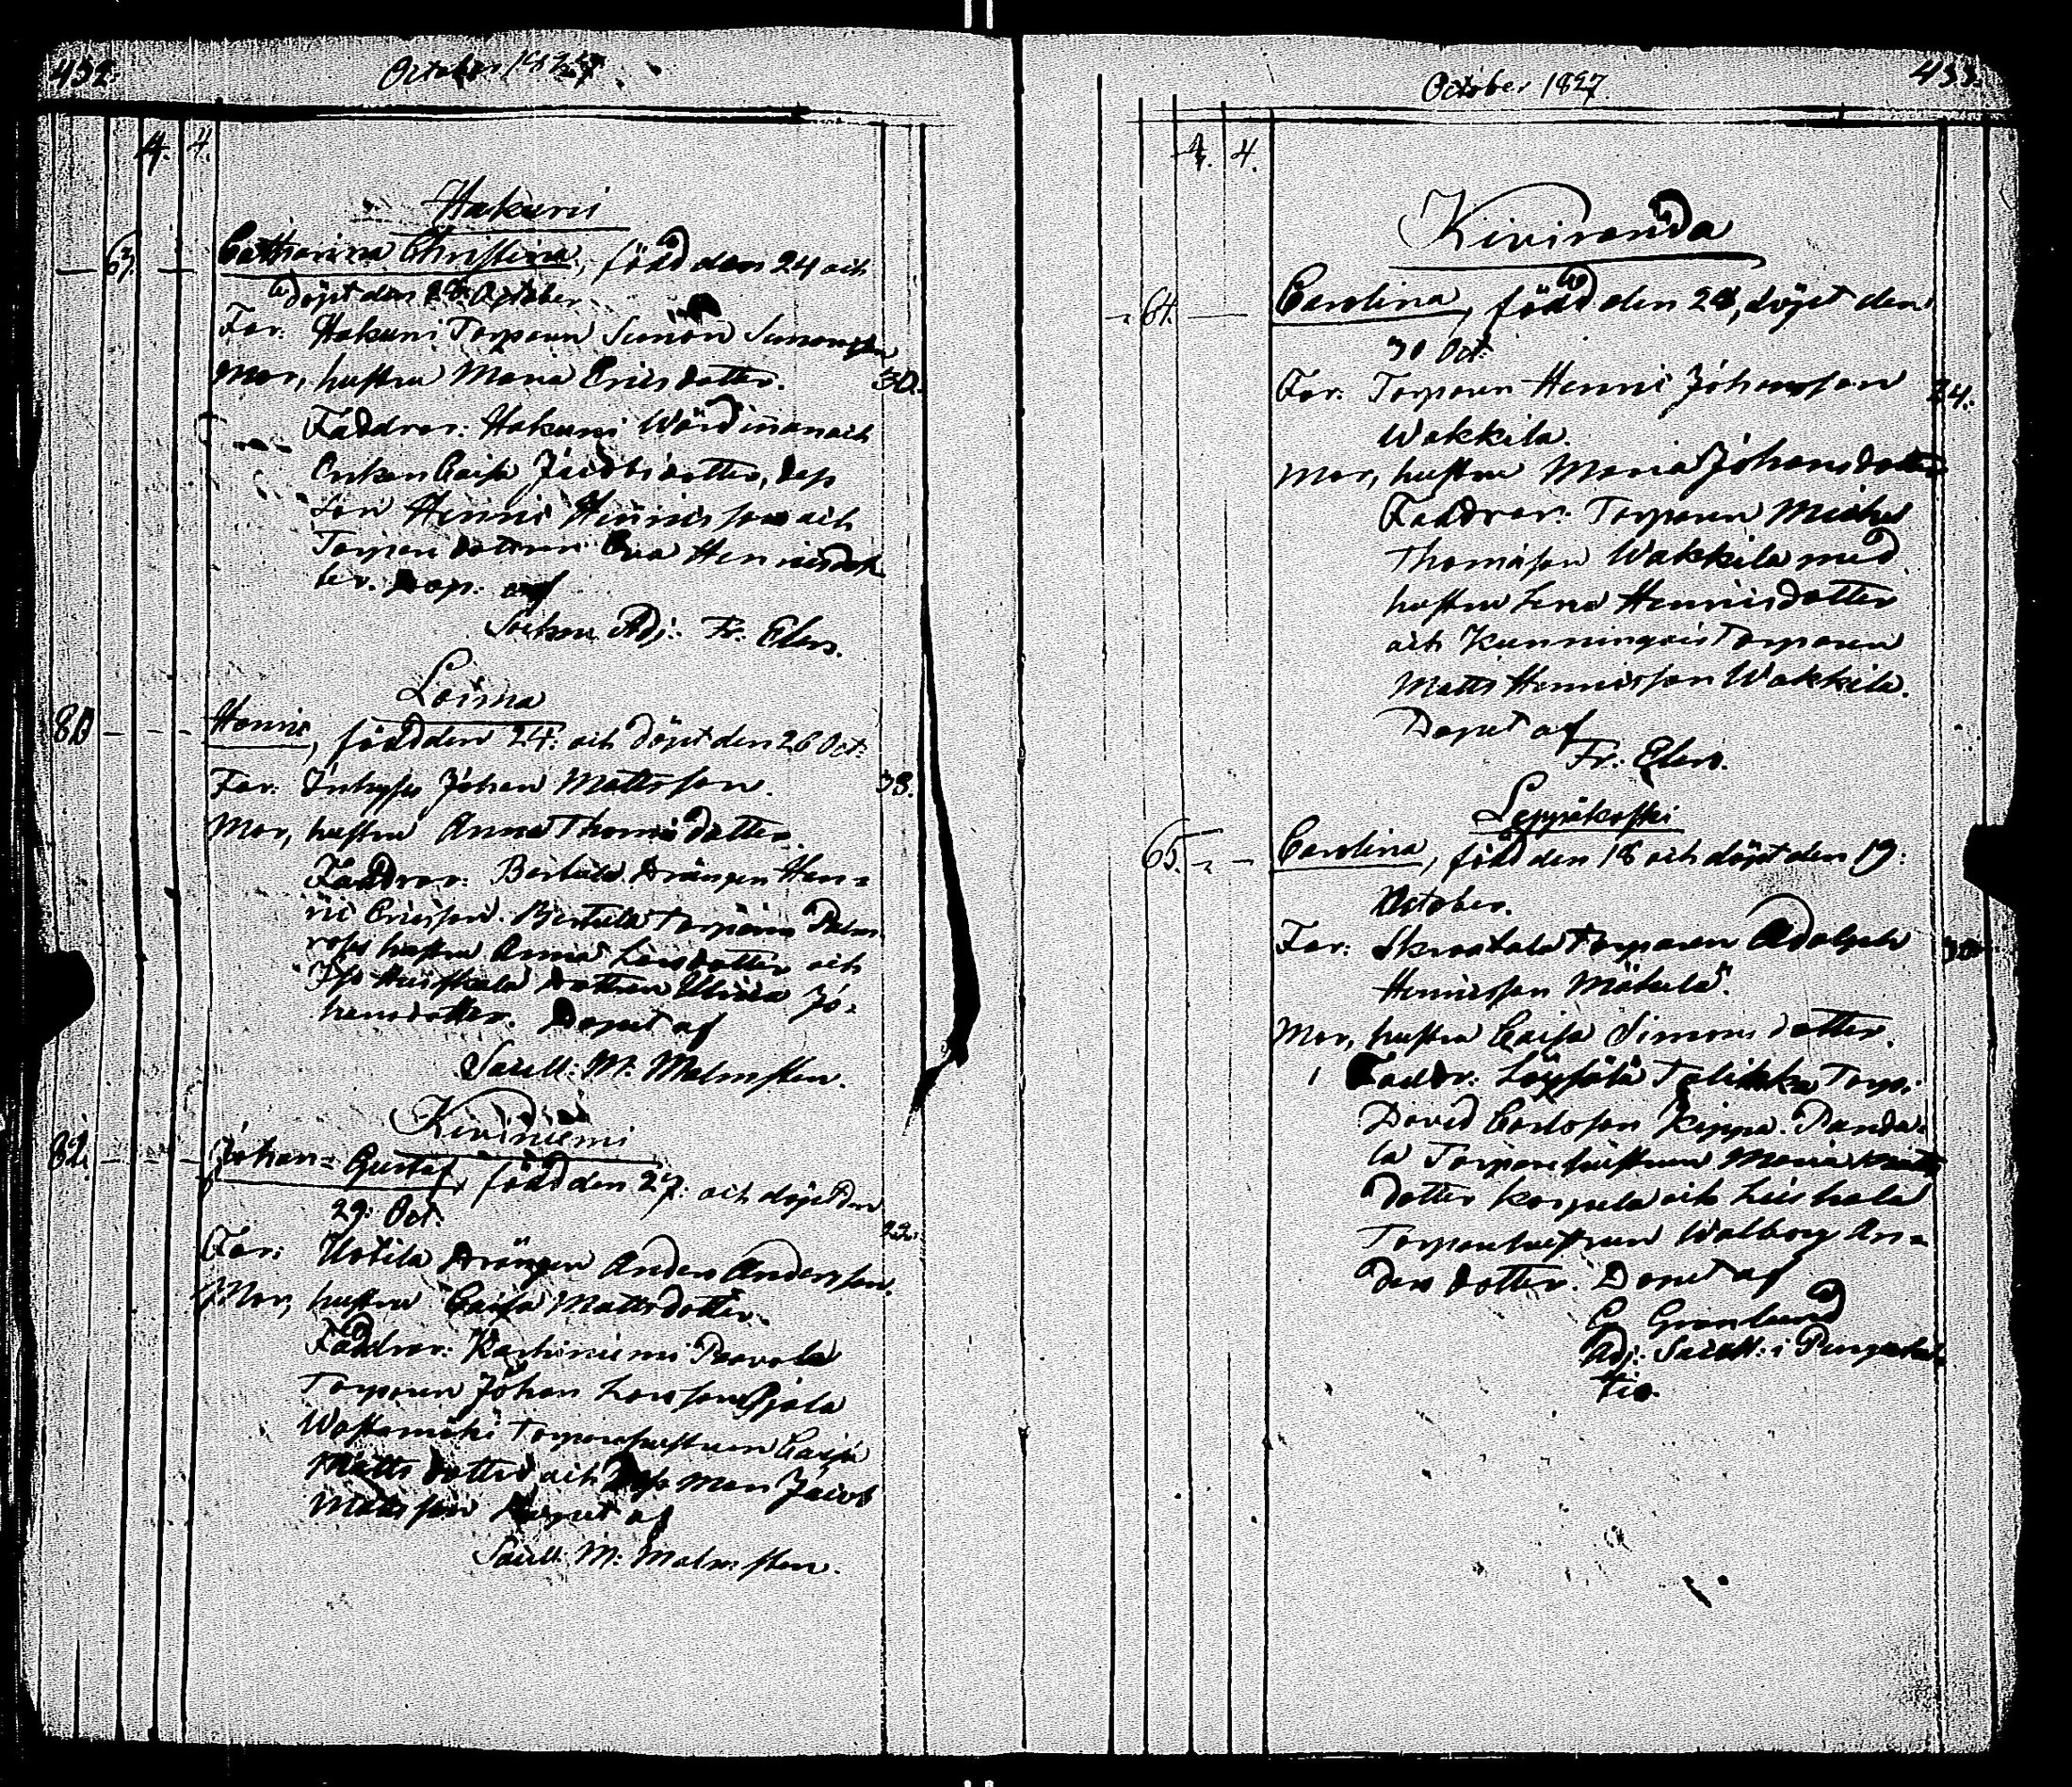 432.
October 1827
4. 4.
Hakuni
63. Catharina Christina, född den 24 och
döpt den October
Far: Hakuni Torparen Simon Simonsson
Mor, hustru Maria Ericsdotter. 30.
Faddrar: Hakuni Wärdinnan och
Enkan Caisa Jacobsdotter, dess
Son Henric Henricsson och
Torpare dottren Eva Henricsdot-
ter. Döp: af
Socken Adj: Fr. Elers.
Loima
80 Henric, född den 24: och döpt den 26 Oct:
Far: Inhyses Johan Mattsson. 38.
Mor, hustru Anna Thomsdotter.
Faddrar: Bertula Drängen Hen-
ric Ericsson. Bertula Torparen
hustru Anna Larsdotter och
dottren Ulrica Jo-
hansdotter. Döpet af
Sacell: M. Malmsten.
Kiviniemi
82. Johan Gustaf, född den 27: och döpt den
29: Oct: 22.
Far: Uotila Drängen Anders Andersson.
Mor, hustru Caisa Mattsdotter.
Faddrar: Karhiniemi Paavola
Torparen Johan Larsson
Torparehustrun Caisa
Mattsdotter och dess man Jacob
Mattsson Döpet af
Sacell: M: Malmsten.
433.
October 1827
4. 4.
Kiviranda
64. Carolina, född den 28, döpt den
30 Oct:
Far: Torparen Henric Johansson 34.
Wakkila.
Mor, hustru Maria Johansdotter
Faddrar: Torparen Michel
Thomasson Wakkila med
hustru Lena Henricsdotter
och Kunningois Torparen
Matts Henricsson Wakkila.
Döpet af
Fr: Elers.
Leppäkoski
65. Carolina, född den 18 och döpt den 19:
October.
Far: Torparen Adolph 30
Henricsson Mäkelä.
Mor, hustru Caisa Simonsdotter.
Faddr: Torp:
David Carlsson Kippa. Panda-
la Torparehustrun Maria Matts
dotter Korpela och
Torparehustrun Walborg An-
ders dotter. Döpet af
C. Granlund
Adj: Sacell: i Pungalai-
tio.